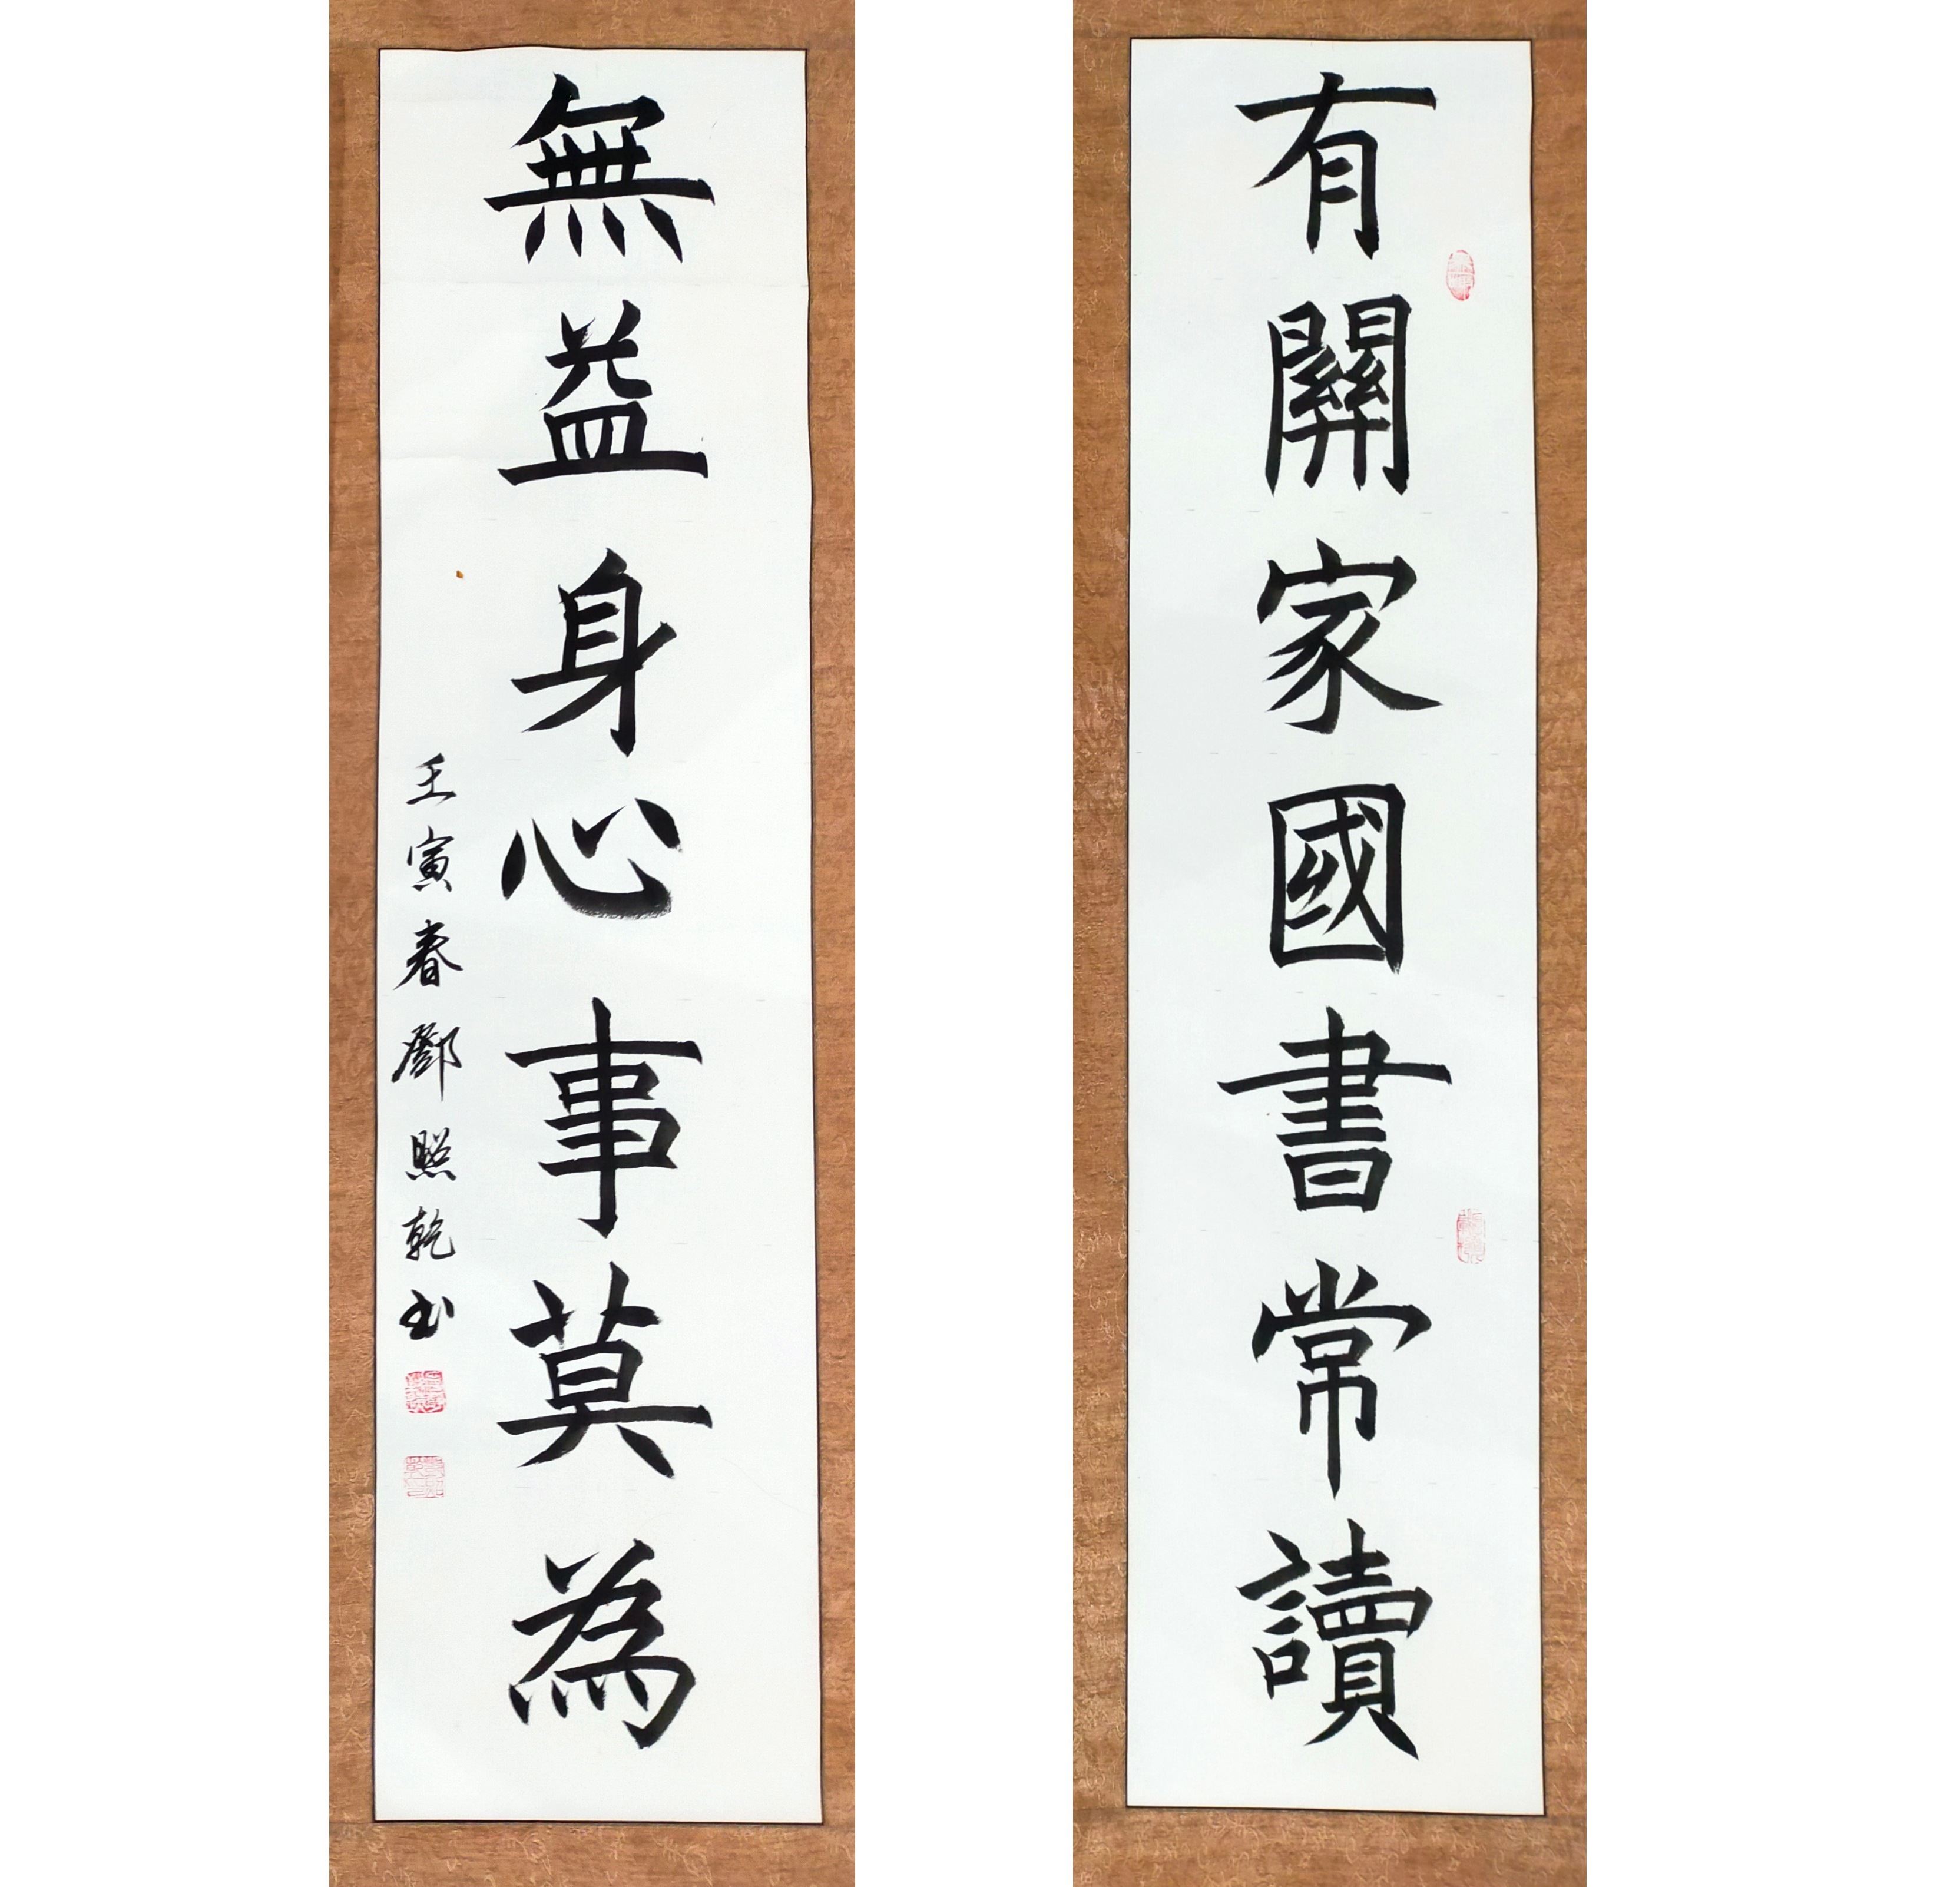 有關家國書常讀
無益身心事莫為
壬寅春鄧照乾书